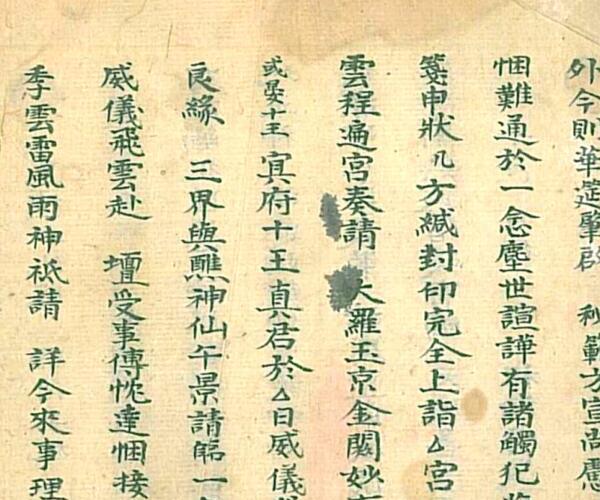 外今則華筵肇啟 秘範方宣尚慮
悃難通於一念塵世諠譁有諸觸犯
箋申狀几方緘封印完全上詣△宮
雲程遍宮奏請 大羅玉京金闕妙
或晏十王 冥府十王真君於△日威儀
良緣 三界與醮神仙午景請臨一
威儀飛雲赴 壇受事傳忱達悃接
季雲雷風雨神祇請 詳今來事理